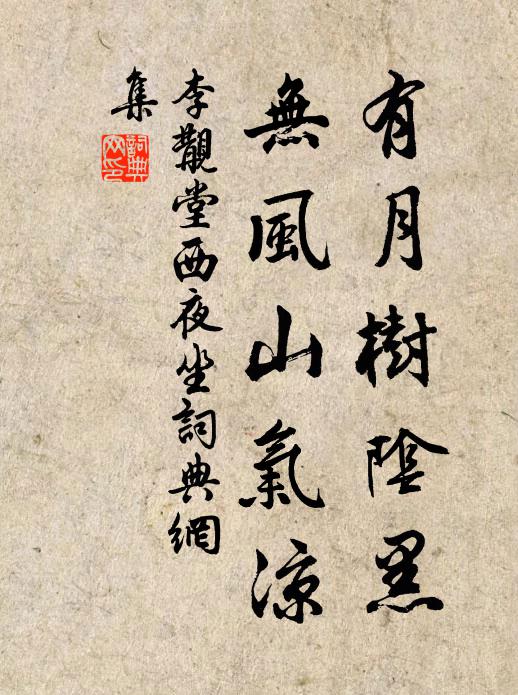 有月樹陰黑
無風山氣涼
李覯堂西夜坐詞典網
集
詞典
網印